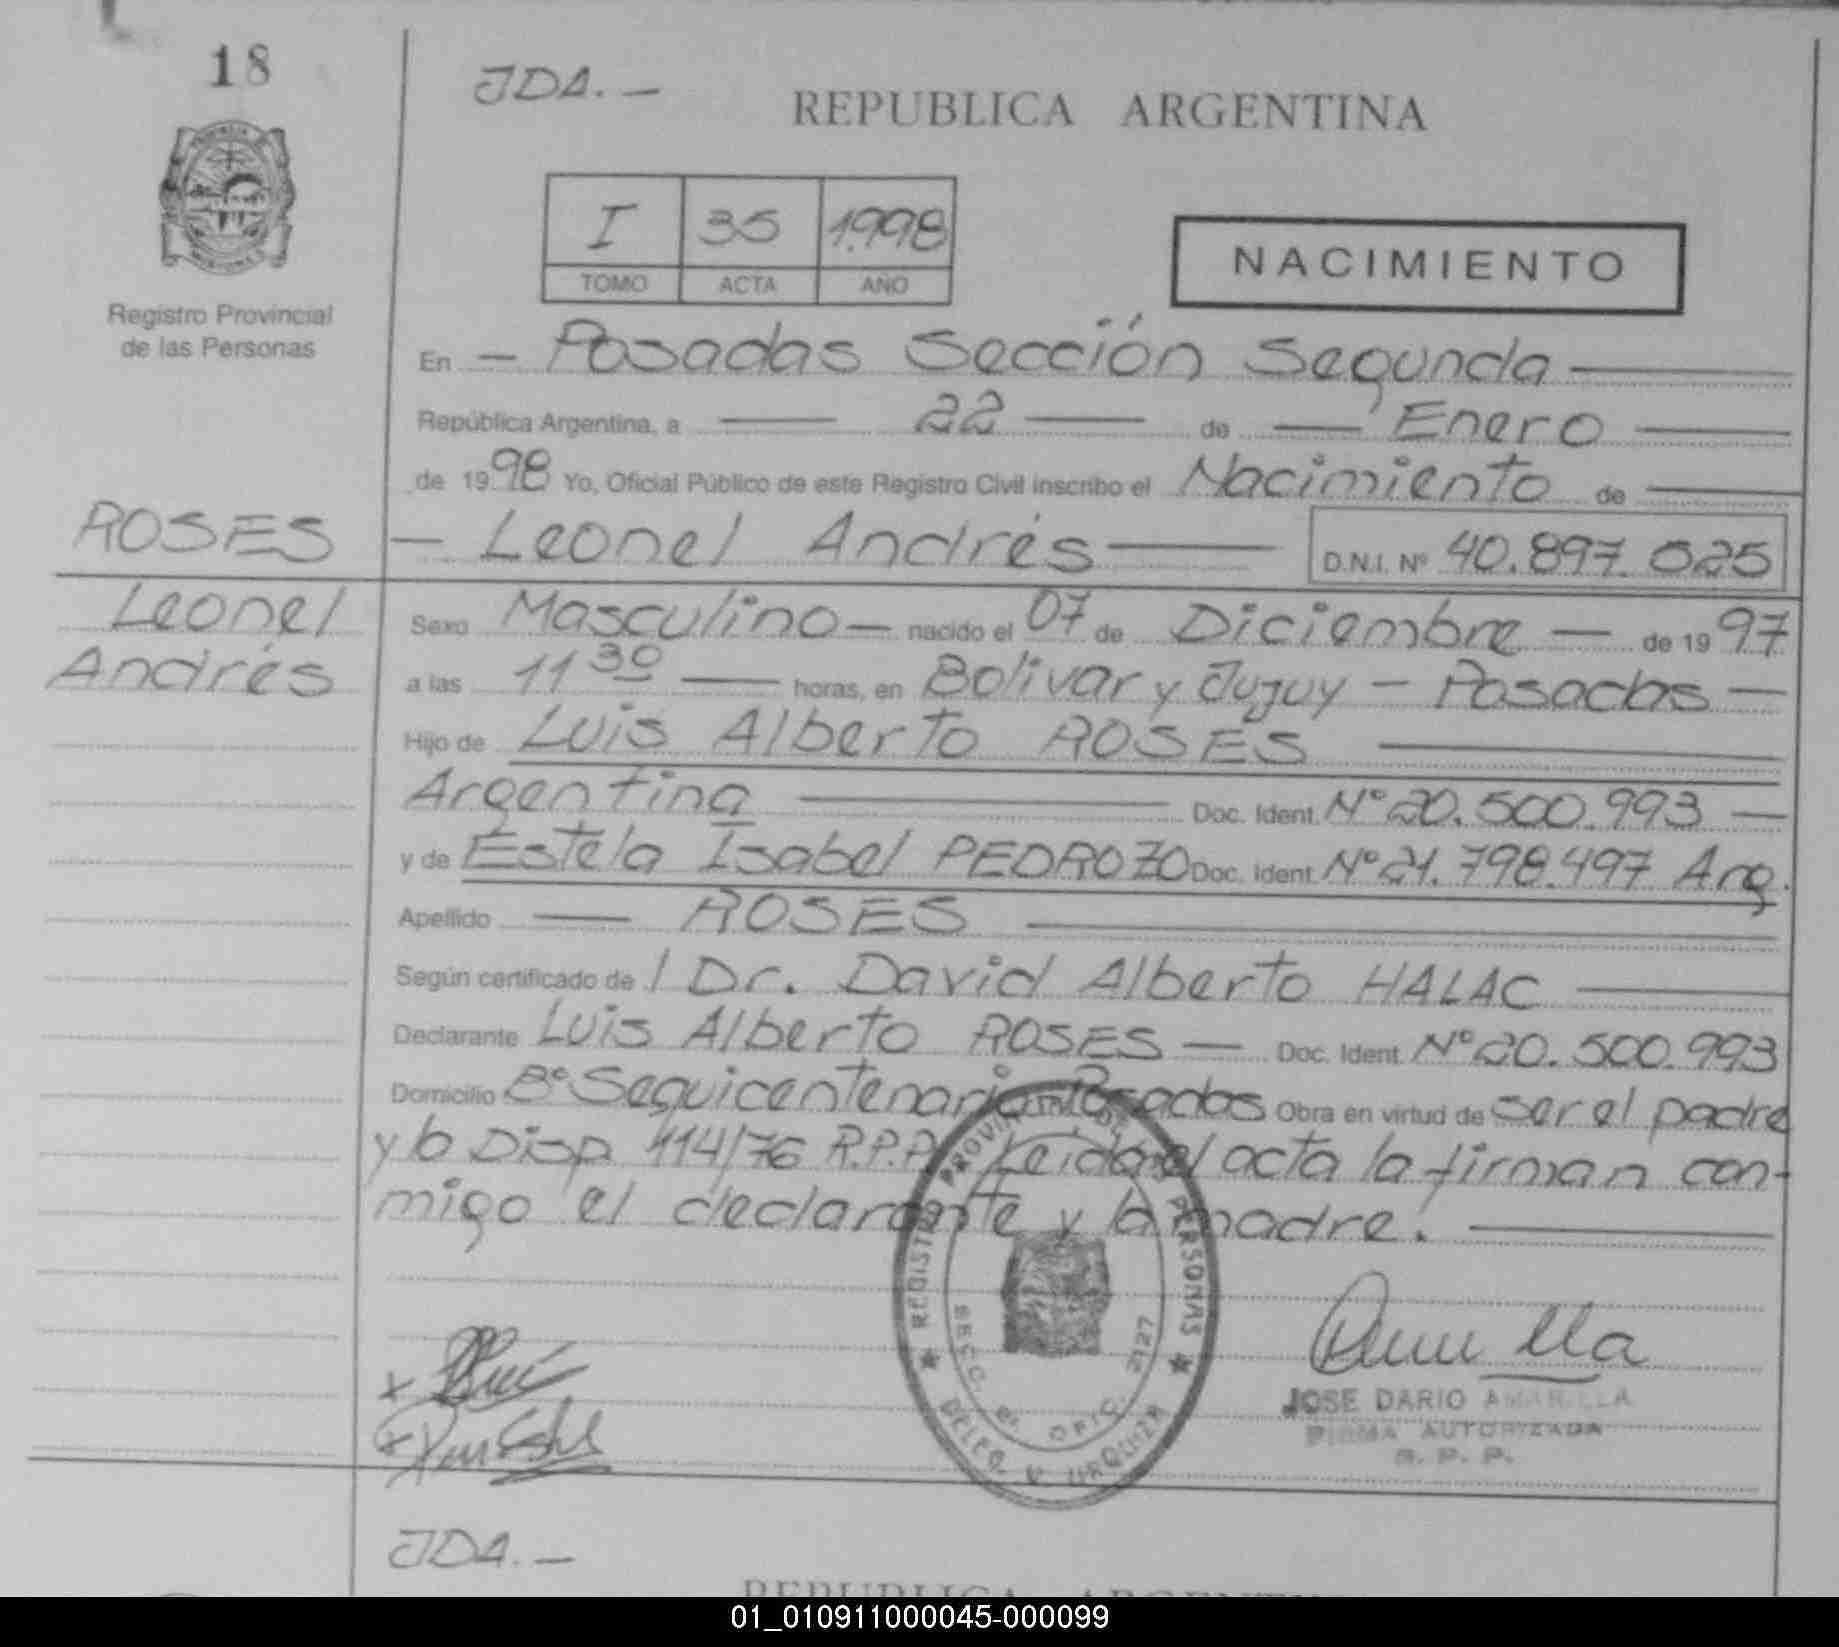 18
JDA. —
REPUBLICA ARGENTINA
I 35 1.998
TOMO ACTA AÑO
NACIMIENTO
Registro Provincial
de las Personas
En — Posadas Sección Segunda —
República Argentina, a — 22 — de — Enero —
de 1998 Yo, Oficial Público de este Registro Civil inscribo el Nacimiento de —
ROSES
— Leonel Andrés — D.N.I. Nº 40.897.025
Leonel
Andrés
Sexo Masculino — nacido el 07 de Diciembre — de 1997
a las 11 30 — horas, en Bolivar y Jujuy — Posadas —
Hijo de Luis Alberto ROSES —
Argentina — Doc. Ident. Nº 20.500.993 —
y de Estela Isabel PEDROZO Doc. Ident. Nº 21.798.497 Arg.
Apellido — ROSES —
Según certificado de / Dr. David Alberto HALAC —
Declarante Luis Alberto ROSES — Doc. Ident. Nº 20.500.993
Domicilio Bº Sequicentenario Posadas Obra en virtud de ser el padre
y lo Disp. 114/76 R.P.P. Leída el acta la firman con-
migo el declarante y la madre. —
REGISTRO PROVINCIAL DE LAS PERSONAS
SECC. 2ª OFIC. 2127
DELEG. V. URQUIZA
JOSE DARIO AMARILLA
FIRMA AUTORIZADA
R. P. P.
JDA. —
REPUBLICA ARGENTINA
01_010911000045-000099